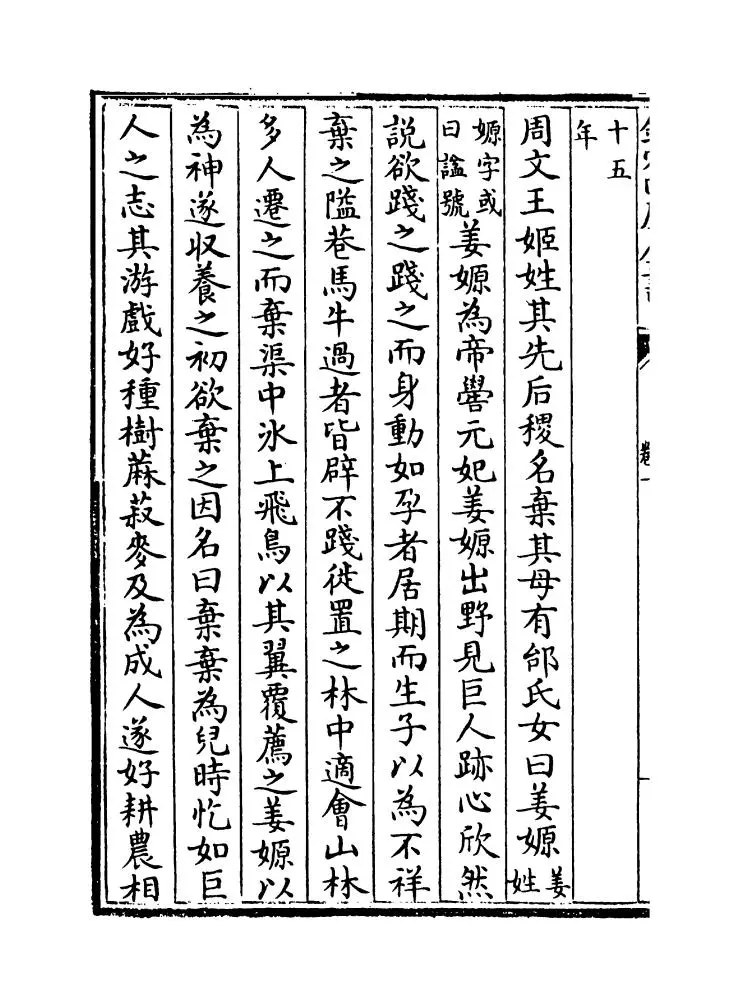 十五
年
周文王姬姓其先后稷名棄其母有邰氏女曰姜嫄姜姓
嫄字或曰諡號姜嫄為帝嚳元妃姜嫄出野見巨人跡心欣然
說欲踐之踐之而身動如孕者居期而生子以為不祥
棄之隘巷馬牛過者皆辟不踐徙置之林中適會山林
多人遷之而棄渠中冰上飛鳥以其翼覆薦之姜嫄以
為神遂収養之初欲棄之因名曰棄棄為兒時忔如巨
人之志其游戲好種樹蔴菽麥及為成人遂好耕農相